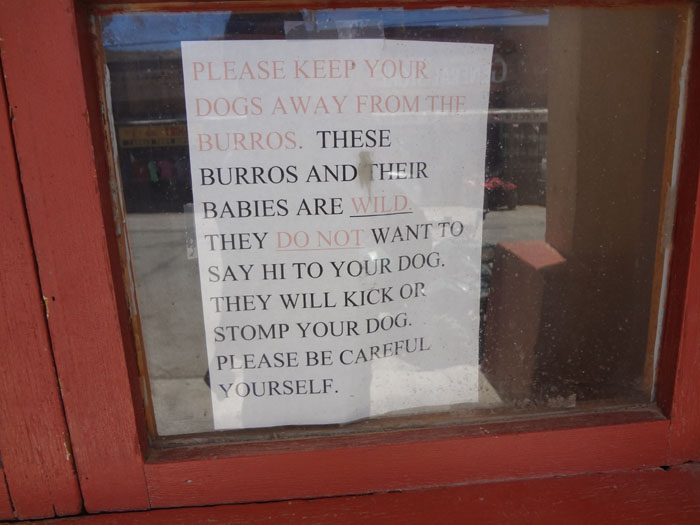 PLEASE KEEP YOUR
DOGS AWAY FROM THE
BURROS. THESE
BURROS AND THEIR
BABIES ARE WILD.
THEY DO NOT WANT TO
SAY HI TO YOUR DOG.
THEY WILL KICK OR
STOMP YOUR DOG.
PLEASE BE CAREFUL
YOURSELF.